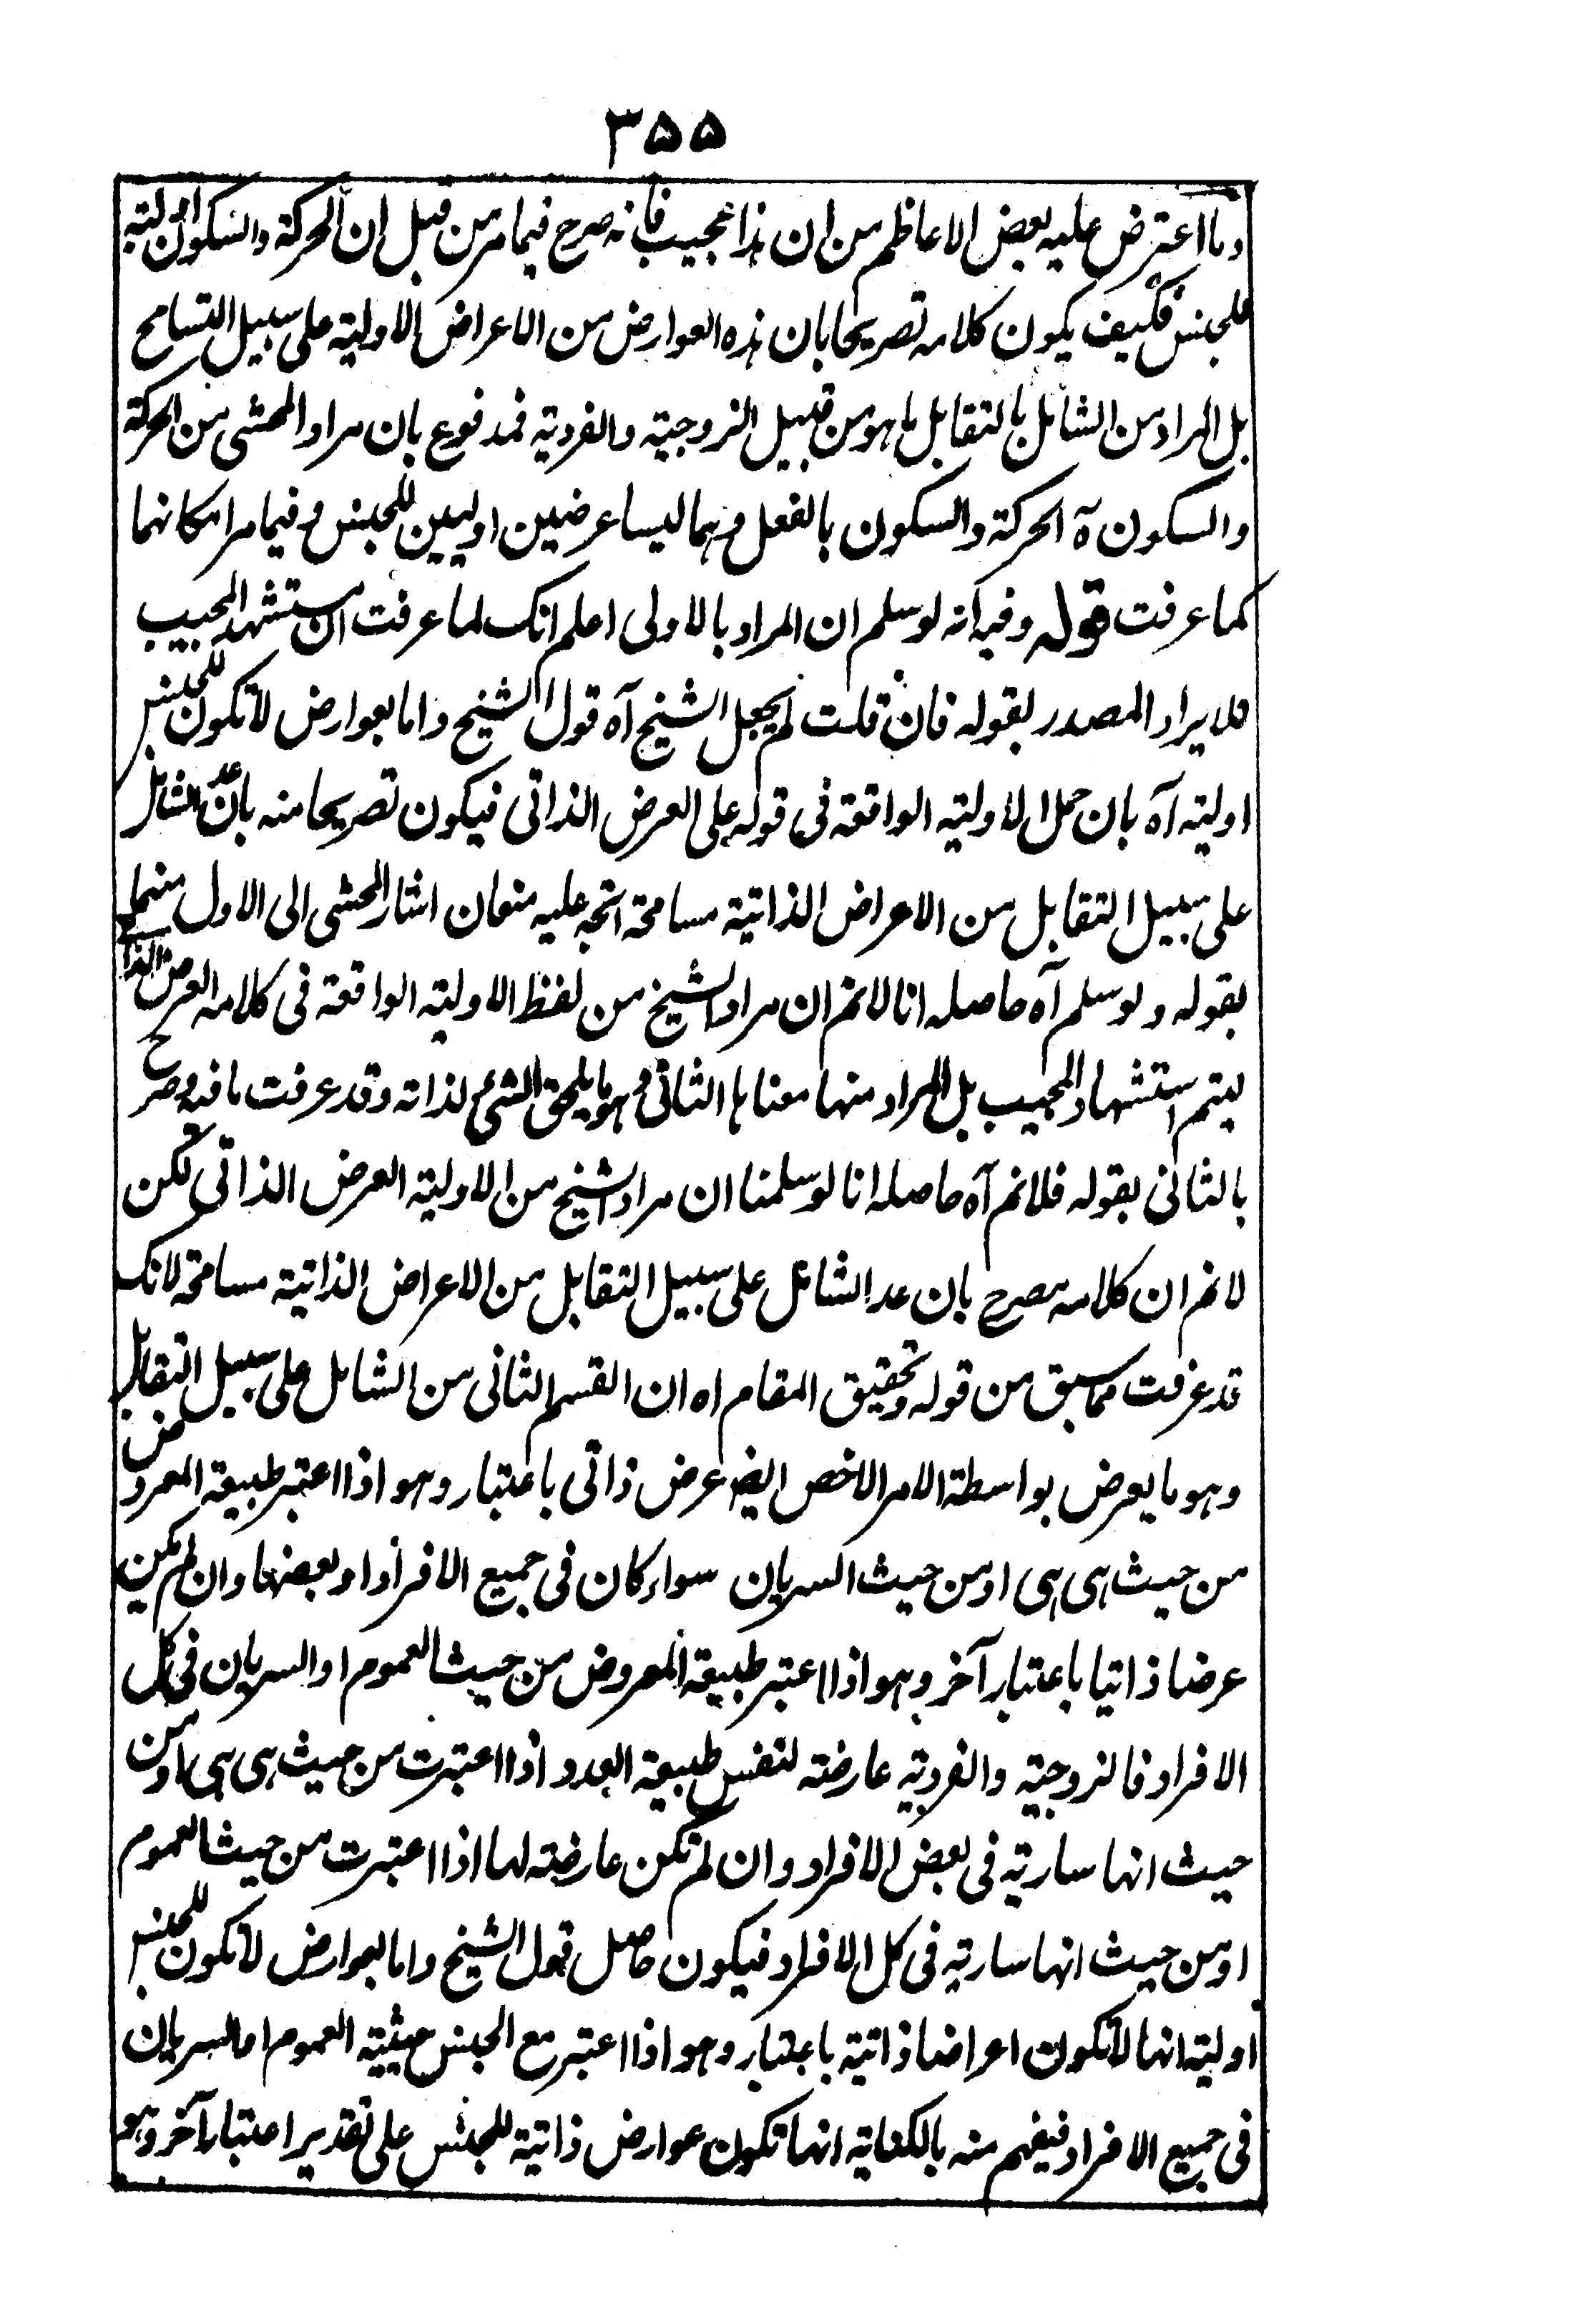 ٣٥٥
وما اعترض عليه بعض الاعاظم من ان هذا عجيب فانه صرح فيما مر من قبل ان الحركة والسكون اولية
للجنس فكيف يكون كلامه تصريحا بان هذه العوارض من الاعراض الاولية على سبيل التسامح
بل المراد من الشامل بالتقابل ما هو من قبيل الزوجية والفردية فمدفوع بان مراد المحشى من الحركة
والسكون آه الحركة والسكون بالفعل وهما ليسا عرضين اوليين للجنس وفيما مر امكانهما
كما عرفت قوله وفيه انه لو سلم ان المراد بالاولى اعلم انك لما عرفت ان استشهد المجيب
فلايراد المصدر بقوله فان قلت لم يجعل الشيخ آه قول الشيخ واما بعوارض لا تكون للجنس
اولية آه بان حمل الاولية الواقعة فى قوله على العرض الذاتى فيكون تصريحا منه بان عد الشامل
على سبيل التقابل من الاعراض الذاتية مسامحة اتجه عليه منعان اشار المحشى الى الاول منهما
بقوله ولو سلم آه حاصله انا لا نم ان مراد الشيخ من لفظ الاولية الواقعة فى كلامه العرض الذاتى
ليتم استشهاد المجيب بل المراد منها معناها الثانى وهو ما يلحق الشئ لذاته وقد عرفت ما فيه وصرح
بالثانى بقوله فلا نم آه حاصله انا لو سلمنا ان مراد الشيخ من الاولية العرض الذاتى لكن
لا نم ان كلامه مصرح بان عد الشامل على سبيل التقابل من الاعراض الذاتية مسامحة لانك
قد عرفت مما سبق من قوله وتحقيق المقام اه ان القسم الثانى من الشامل على سبيل التقابل
وهو ما يعرض بواسطة الامر الاخص ايضا عرض ذاتى باعتبار وهو اذا اعتبر طبيعة المعروض
من حيث هى هى او من حيث السريان سواء كان فى جميع الافراد او بعضها وان لم يكن
عرضا ذاتيا باعتبار آخر وهو اذا اعتبر طبيعة المعروض من حيث العموم او السريان فى كل
الافراد فالزوجية والفردية عارضة لنفس طبيعة العدد اذا اعتبرت من حيث هى هى او من
حيث انها سارية فى بعض الافراد وان لم تكن عارضة لها اذا اعتبرت من حيث العموم
او من حيث انها سارية فى كل الافراد فيكون حاصل قول الشيخ واما بعوارض لا تكون للجنس
اولية انها لا تكون اعراضا ذاتية باعتبار وهو اذا اعتبر مع الجنس حيثية العموم او السريان
فى جميع الافراد فيفهم منه بالكناية انها تكون عوارض ذاتية للجنس على تقدير اعتبار آخر وهو